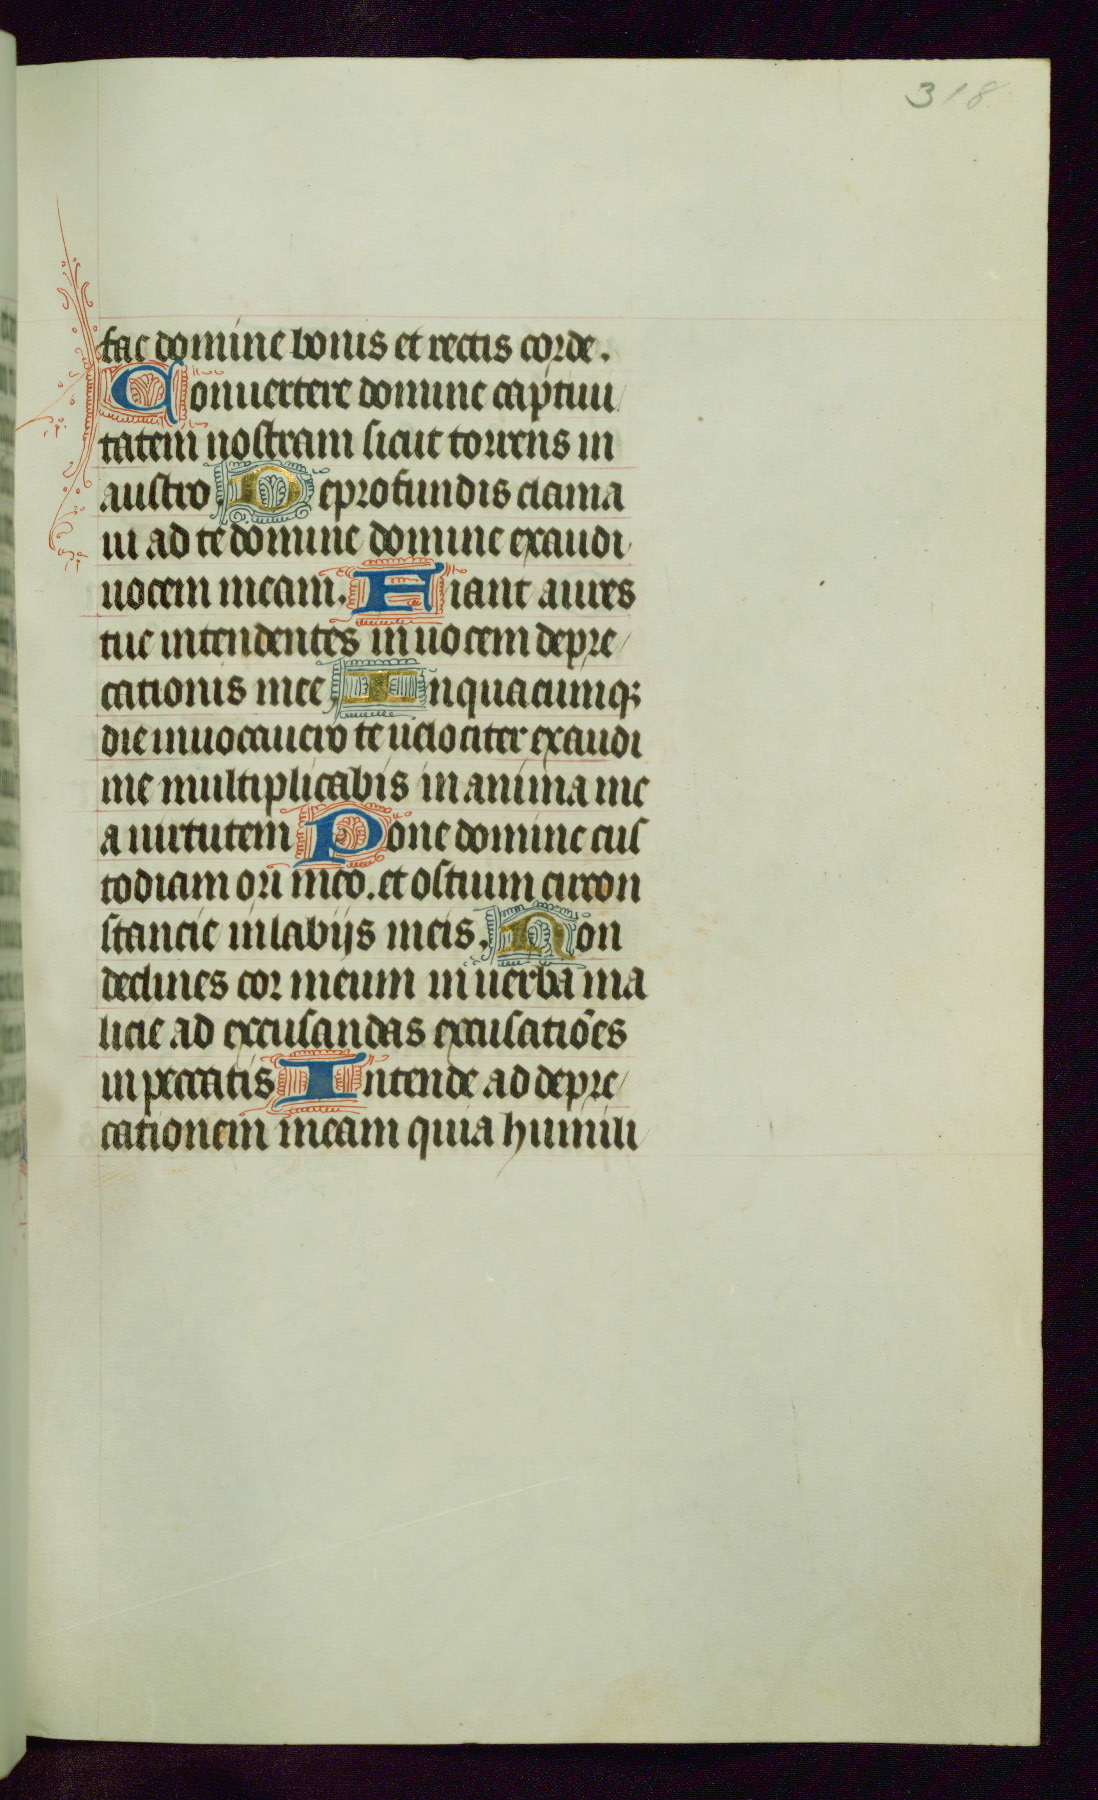 318
fac domine bonis et rectis corde.
Conuertere domine captiui
tatem nostram sicut torrens in
austro. De profundis clama
ui ad te domine domine exaudi
uocem meam. Fiant aures
tue intendentes in uocem depre
cationis mee. In quacumqz
die inuocauero te uelociter exaudi
me multiplicabis in anima me
a uirtutem Pone domine cus
todiam ori meo. et ostium circon
stancie in labijs meis. Non
declines cor meum in uerba ma
licie ad excusandas excusatiões
in peccatis Intende ad depre
cationem meam quia humili